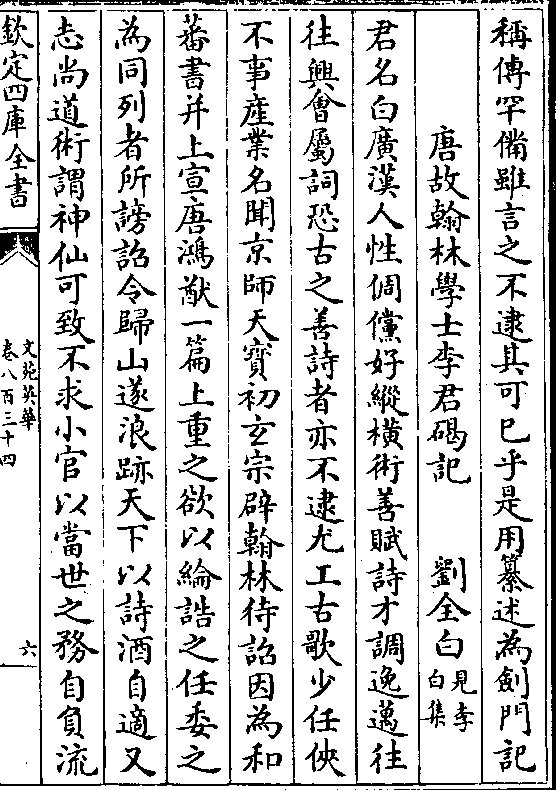 稱傳罕備雖言之不逮其可已乎是用纂述為劍門記
唐故翰林學士李君碣記 劉全白見李白集
君名白廣漢人性倜儻好縱橫術善賦詩才調逸邁往
往興會屬詞恐古之善詩者亦不逮尤工古歌少任俠
不事産業名聞京師天寶初玄宗辟翰林待詔因為和
蕃書并上宣唐鴻猷一篇上重之欲以綸誥之任委之
為同列者所謗詔令歸山遂浪跡天下以詩酒自適又
志尚道術謂神仙可致不求小官以當世之務自負流
欽定四庫全書
文苑英華
卷八百三十四
六